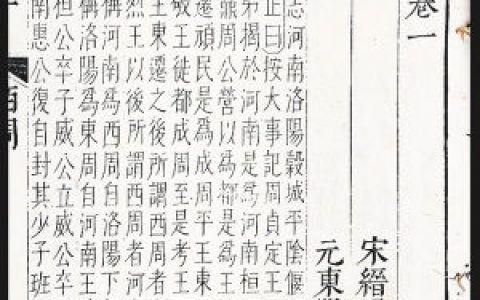 卷一
宋縉
元東
志河南洛陽穀城平陰偃
正曰按大事記周貞定王
弟揭於河南是爲河南桓
鼎周公營以爲都是爲王
遷頑民是爲成周平王東
敬王徙都成周至是考王
王東遷之後所謂西周者
烈王以後所謂西周者河
稱河南爲西周自洛陽下
稱洛陽爲東周自河南王
桓公卒子威公立威公卒
南惠公復自封其少子班
西周